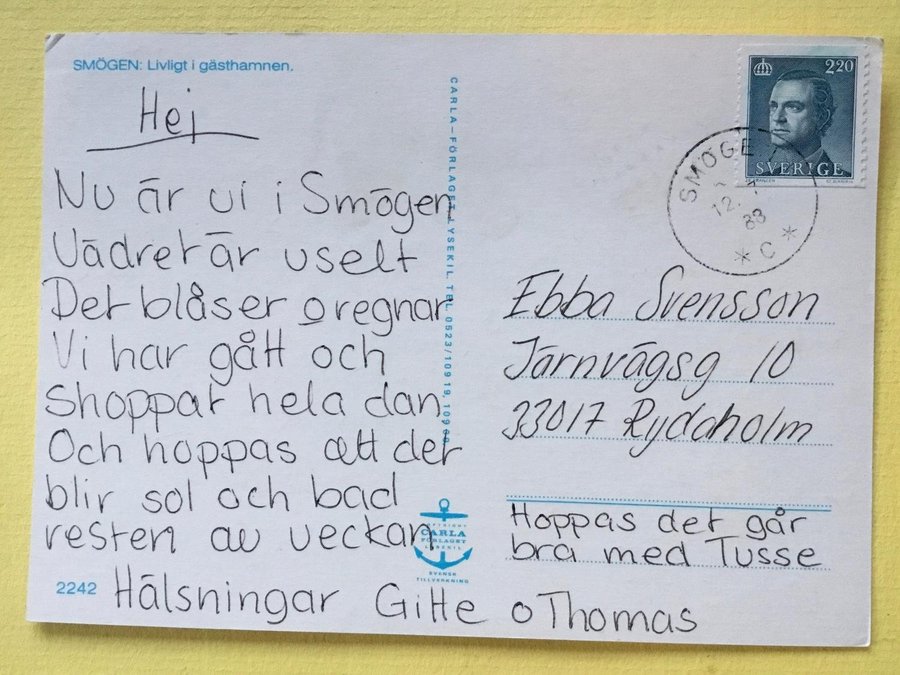 SMÖGEN: Livligt i gästhamnen.
Hej
Nu är vi i Smögen
Vädret är uselt
Det blåser o regnar
Vi har gått och
shoppat hela dan
Och hoppas att det
blir sol och bad
resten av veckan
Hälsningar Gitte o Thomas
2242
CARLA-FÖRLAGET, LYSEKIL, TEL. 0523/10919, 10969
COPYRIGHT
CARLA
FÖRLAGET
LYSEKIL
SVENSK
TILLVERKNING
220
SVERIGE
SMÖGE
12.
88
* C *
Ebba Svensson
Järnvägsg 10
33017 Rydaholm
Hoppas det går
bra med Tusse